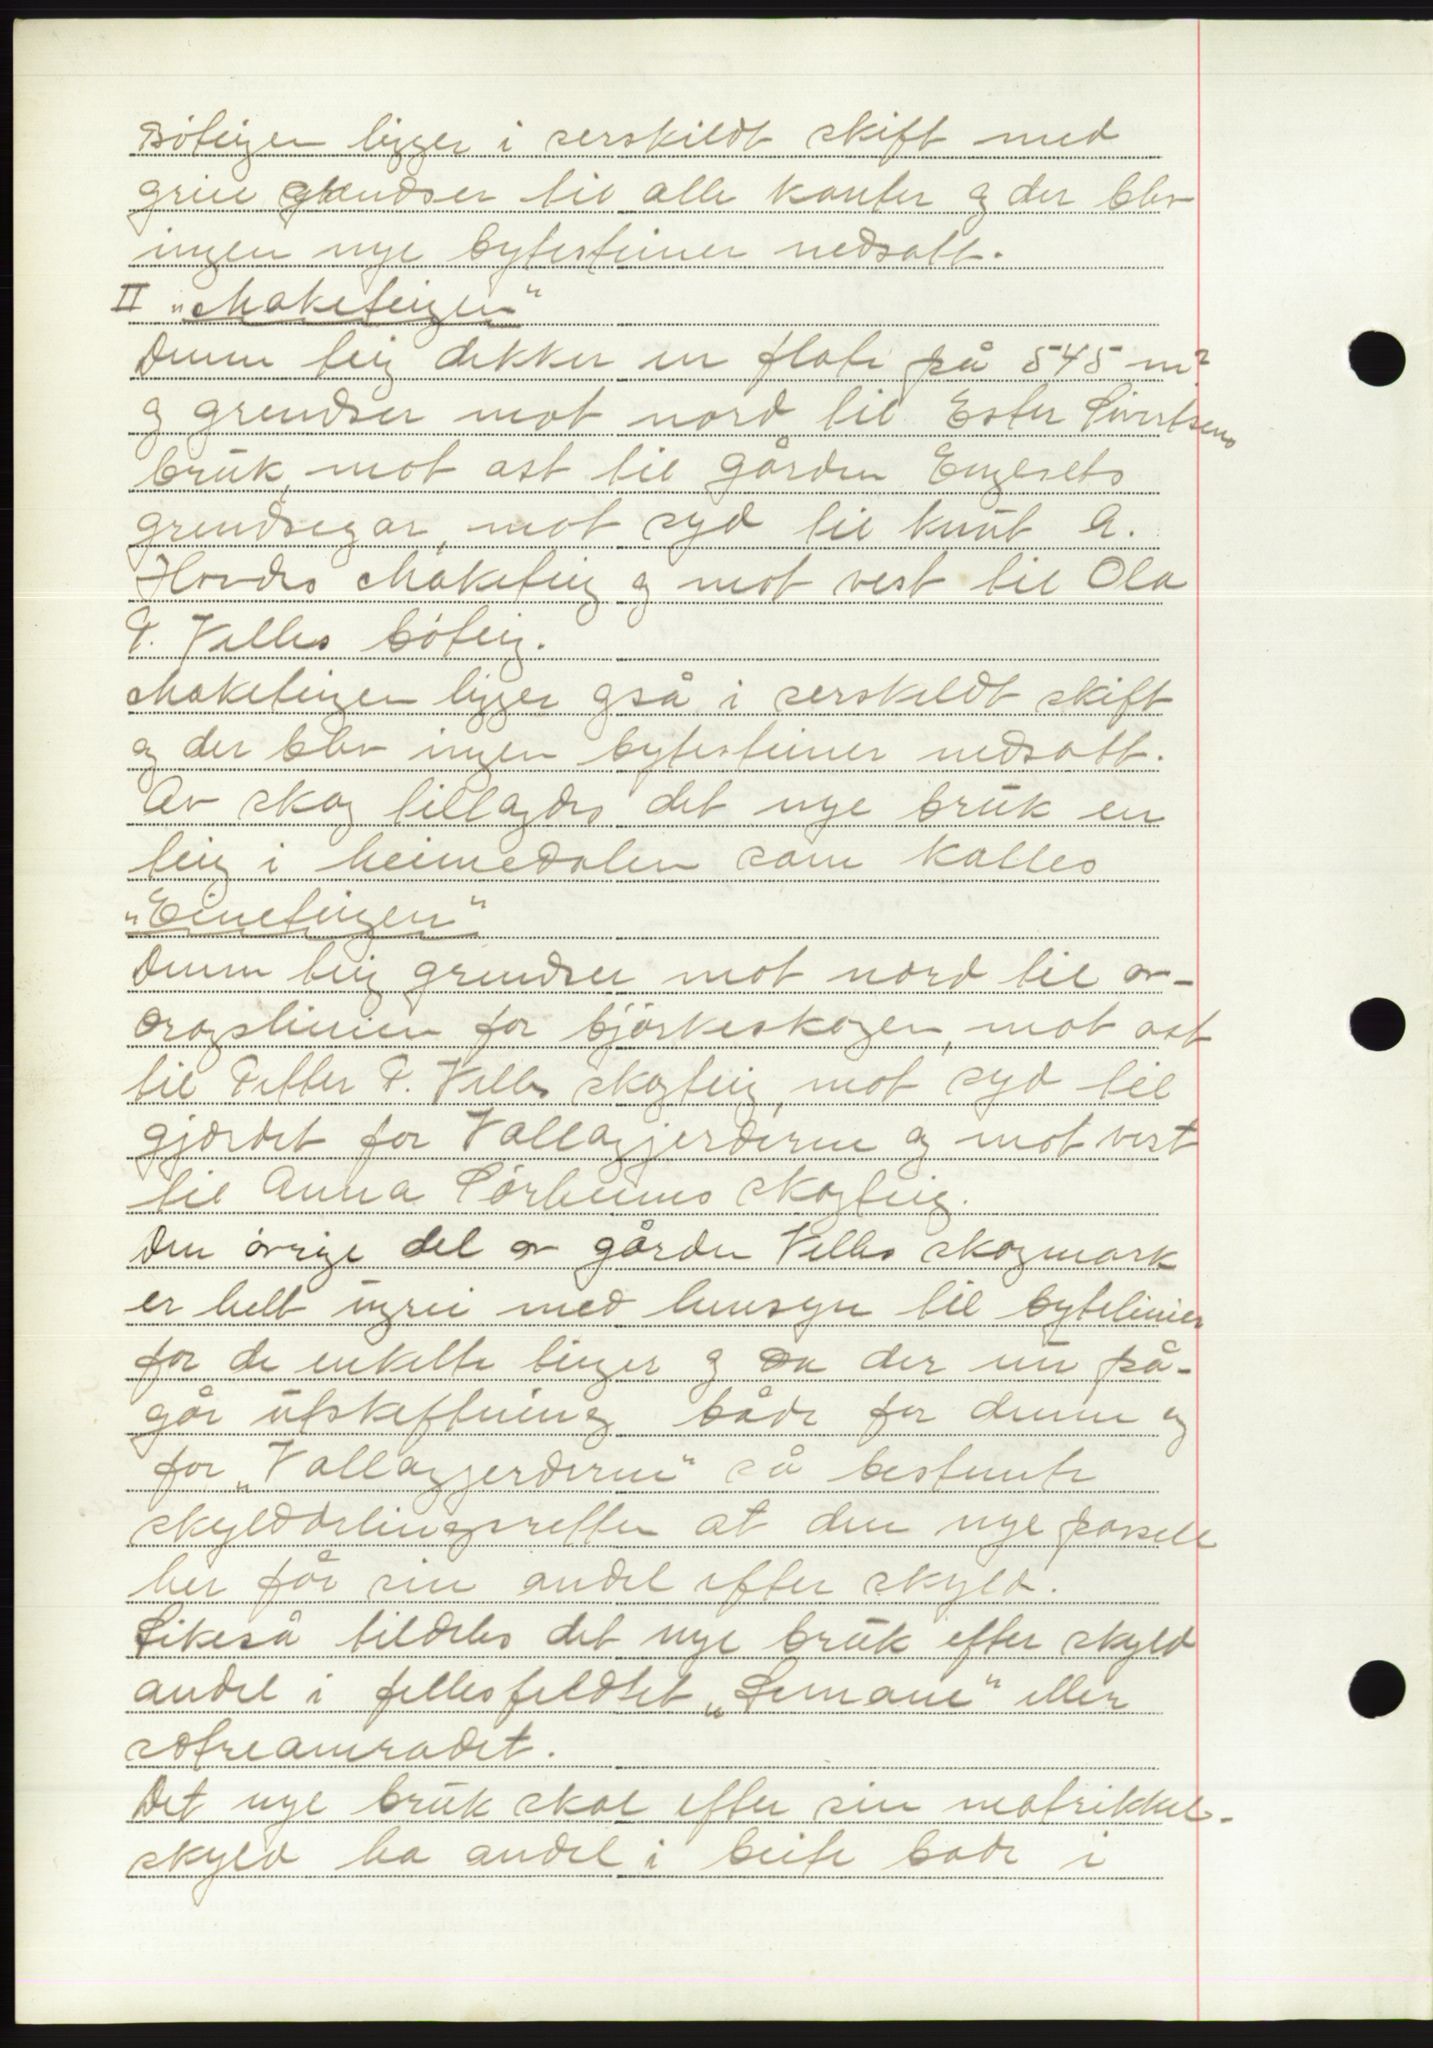 Böteigen ligger i serskildt skift med
greie grendser til alle kanter og der blev
ingen nye bytesteiner nedsatt.
II "Maketeigen"
Denne teig dekker en flate på 545 m²
og grendser mot nord til Ester Sivertsens
bruk, mot ast til gården Engesets
grendsegar, mot syd til Knut A.
Hovdes Maketeig og mot vest til Ola
P. Velles böteig.
Maketeigen ligger også i serskildt skift
og der blev ingen bytesteiner nedsatt.
Av skog tillagdes det nye bruk en
teig i heimedalen som kalles
"Eineteigen"
Denne teig grendser mot nord til av-
dragslinien for björkeskogen, mot ast
til Petter P. Velles skogteig, mot syd til
gjærdet for Vallagjerderne og mot vest
til Anna Sörheims skogteig.
Den övrige del av gården Velles skogmark
er helt ugrei med hensyn til bytelinier
for de enkelte teiger og da der nu på-
går utskiftning både for denne og
for "Vallagjerderne" så bestemte
skylddelingsretten at den nye parsell
her får sin andel efter skyld.
Likeså tildeles det nye bruk efter skyld
andel i fellesfeldtet "Lemane" eller
sætreamradet.
Det nye bruk skal efter sin matrikkel-
skyld ha andel i beite bade i